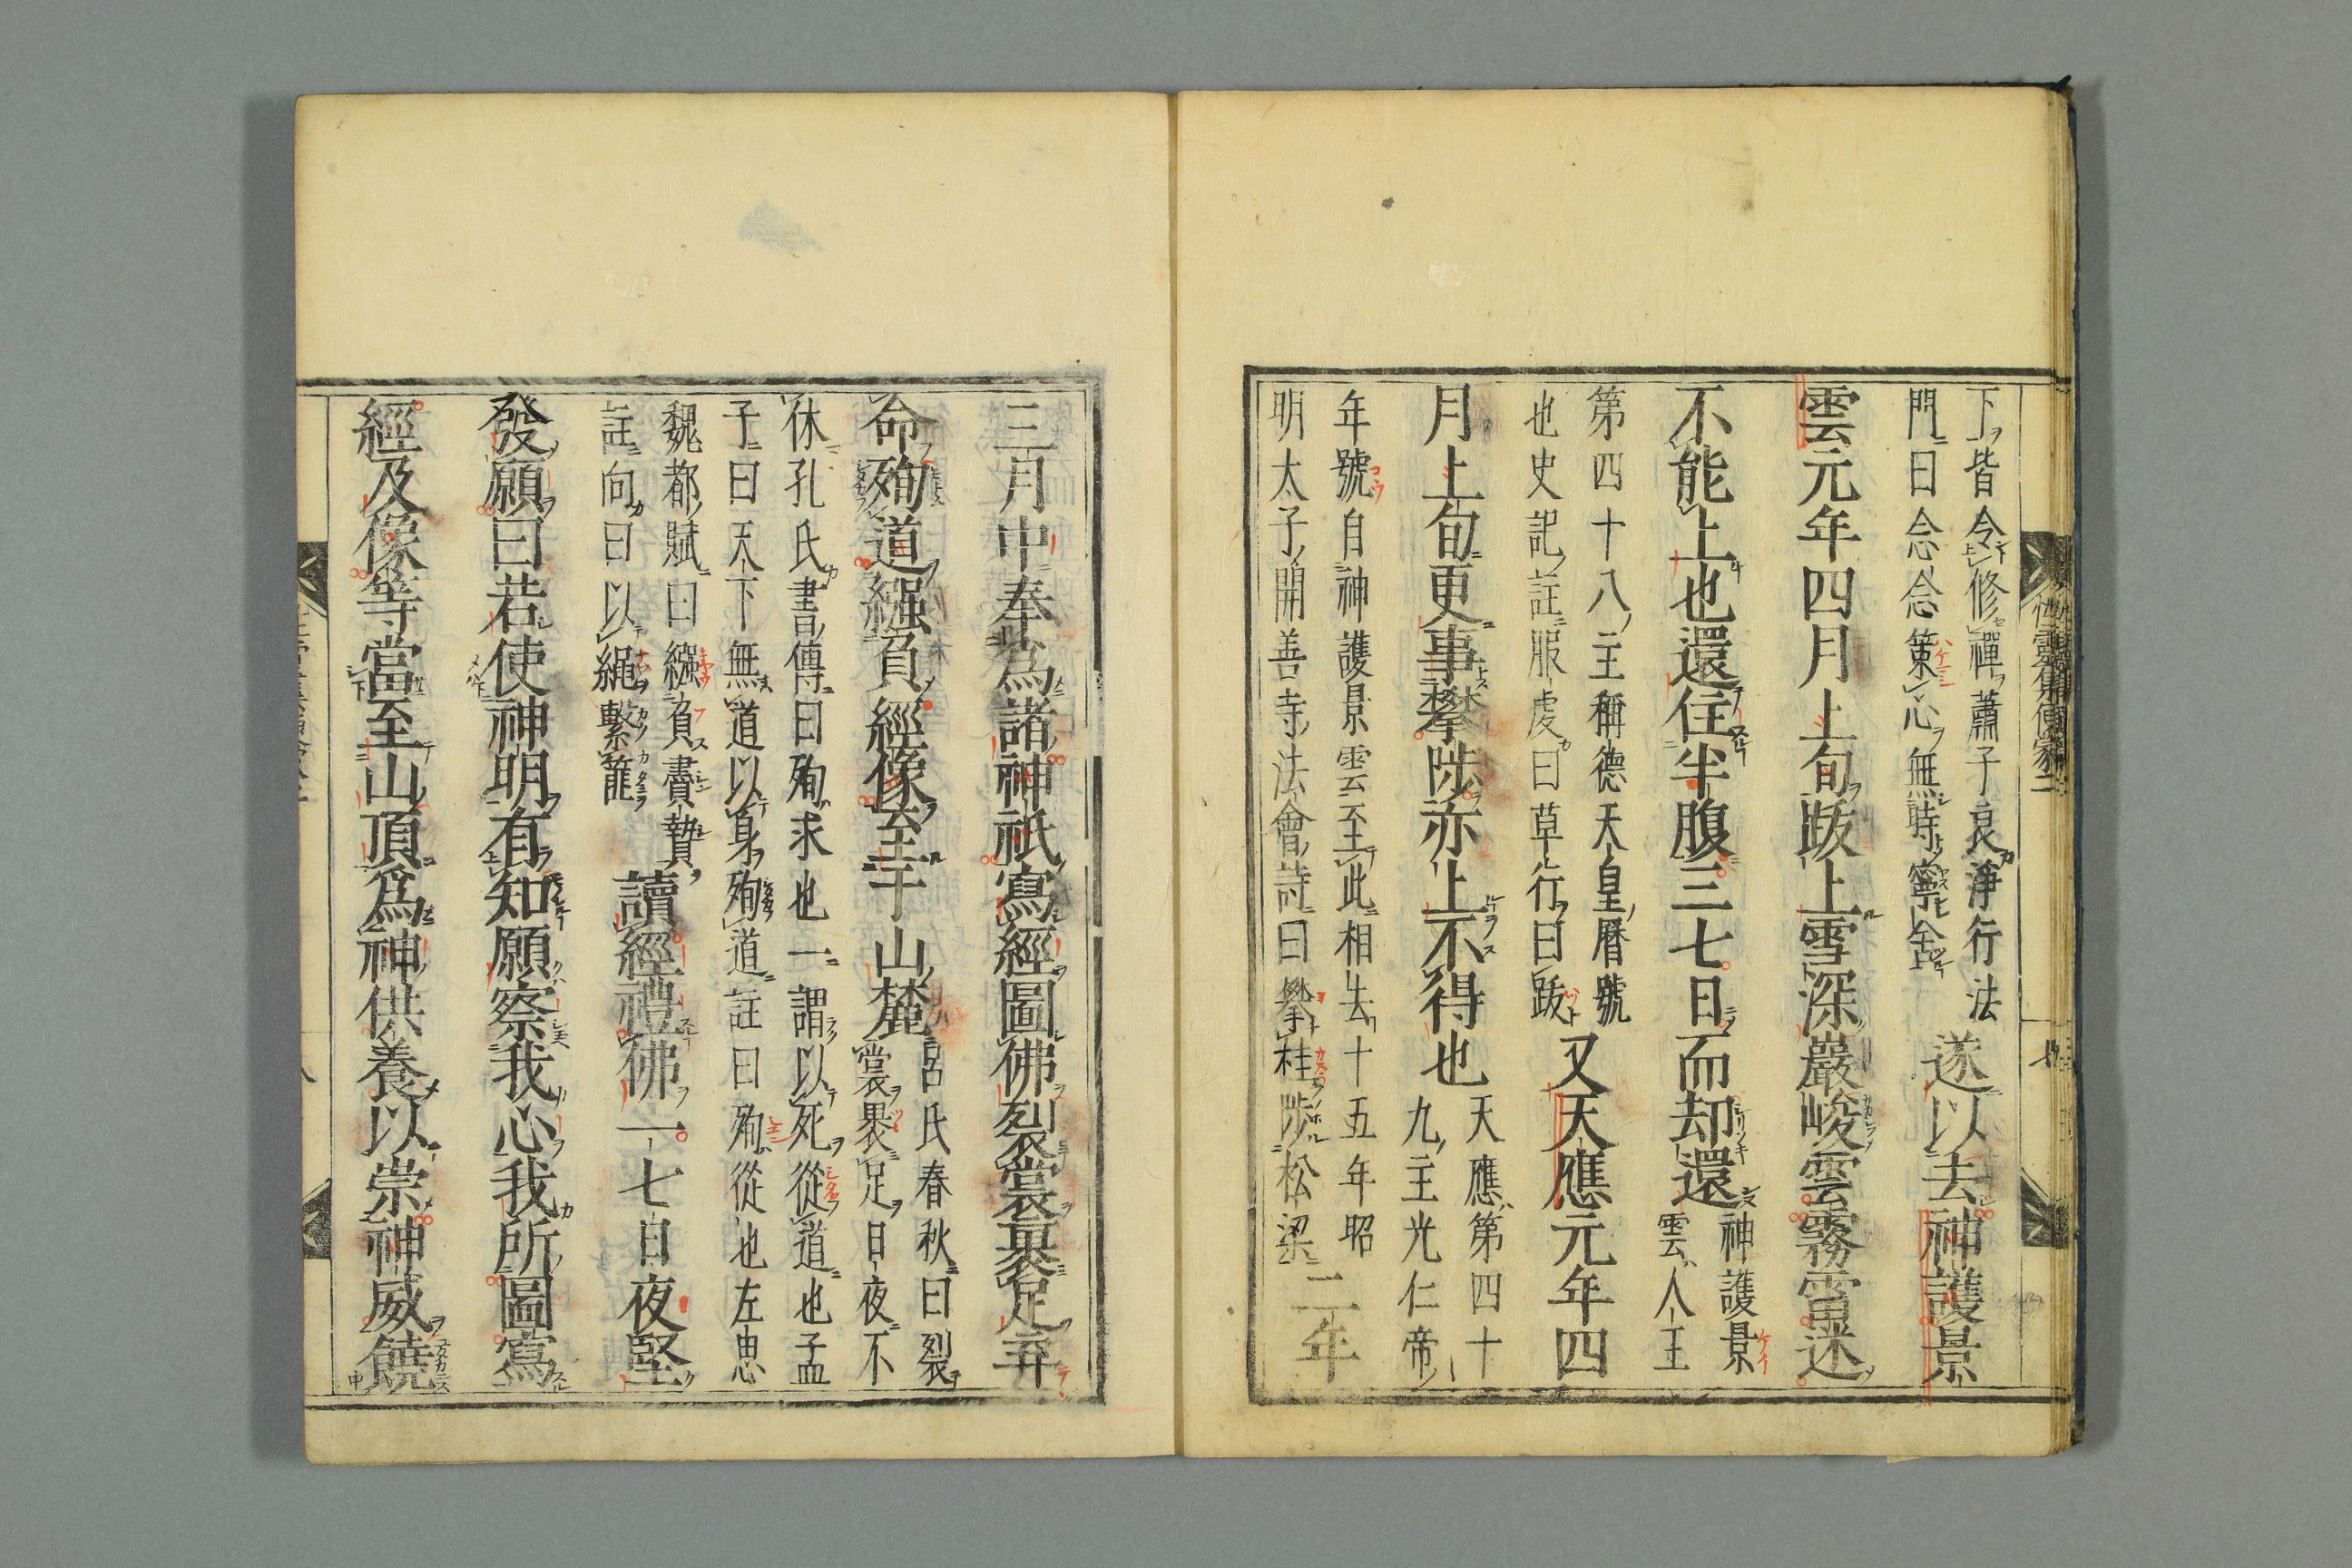 下皆令修禪蕭子良淨行法
門曰念念策心無時寧舍
遂以去神護景
雲元年四月上旬跋上雪深巖峻雲霧雷迷
不能上也還住半腹三七日而却還
神護景
雲人王
第四十八主稱德天皇曆號
也史記註服虔曰草行曰跋
又天應元年四
月上旬更事攀陟亦上不得也
天應第四十
九主光仁帝
年號自神護景雲至此相去十五年昭
明太子開善寺法會詩曰攀桂陟松梁
二年
三月中奉為諸神祇寫經圖佛裂裳裹足弃
命殉道繦負經像至于山麓
呂氏春秋曰裂
裳裹足日夜不
休孔氏書傳曰殉求也一謂以死從道也孟
子曰天下無道以身殉道註曰殉從也左思
魏都賦曰繦負賮贄
註向曰以繩繫籠
讀經禮佛一七日夜堅
發願曰若使神明有知願察我心我所圖寫
經及像等當至山頂為神供養以崇神威饒